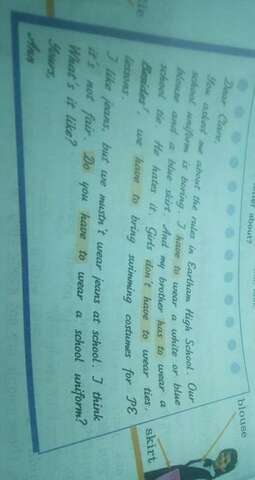 ver about?
Dear Clare,
You asked me about the rules in Eartham High School. Our
school uniform is boring. I have to wear a white or blue
blouse and a blue skirt. And my brother has to wear a
school tie. He hates it. Girls don't have to wear ties.
Besides, we have to bring swimming costumes for PE
lessons.
I like jeans, but we mustn't wear jeans at school. I think
it's not fair. Do you have to wear a school uniform?
What's it like?
Yours,
Ann
blouse
skirt